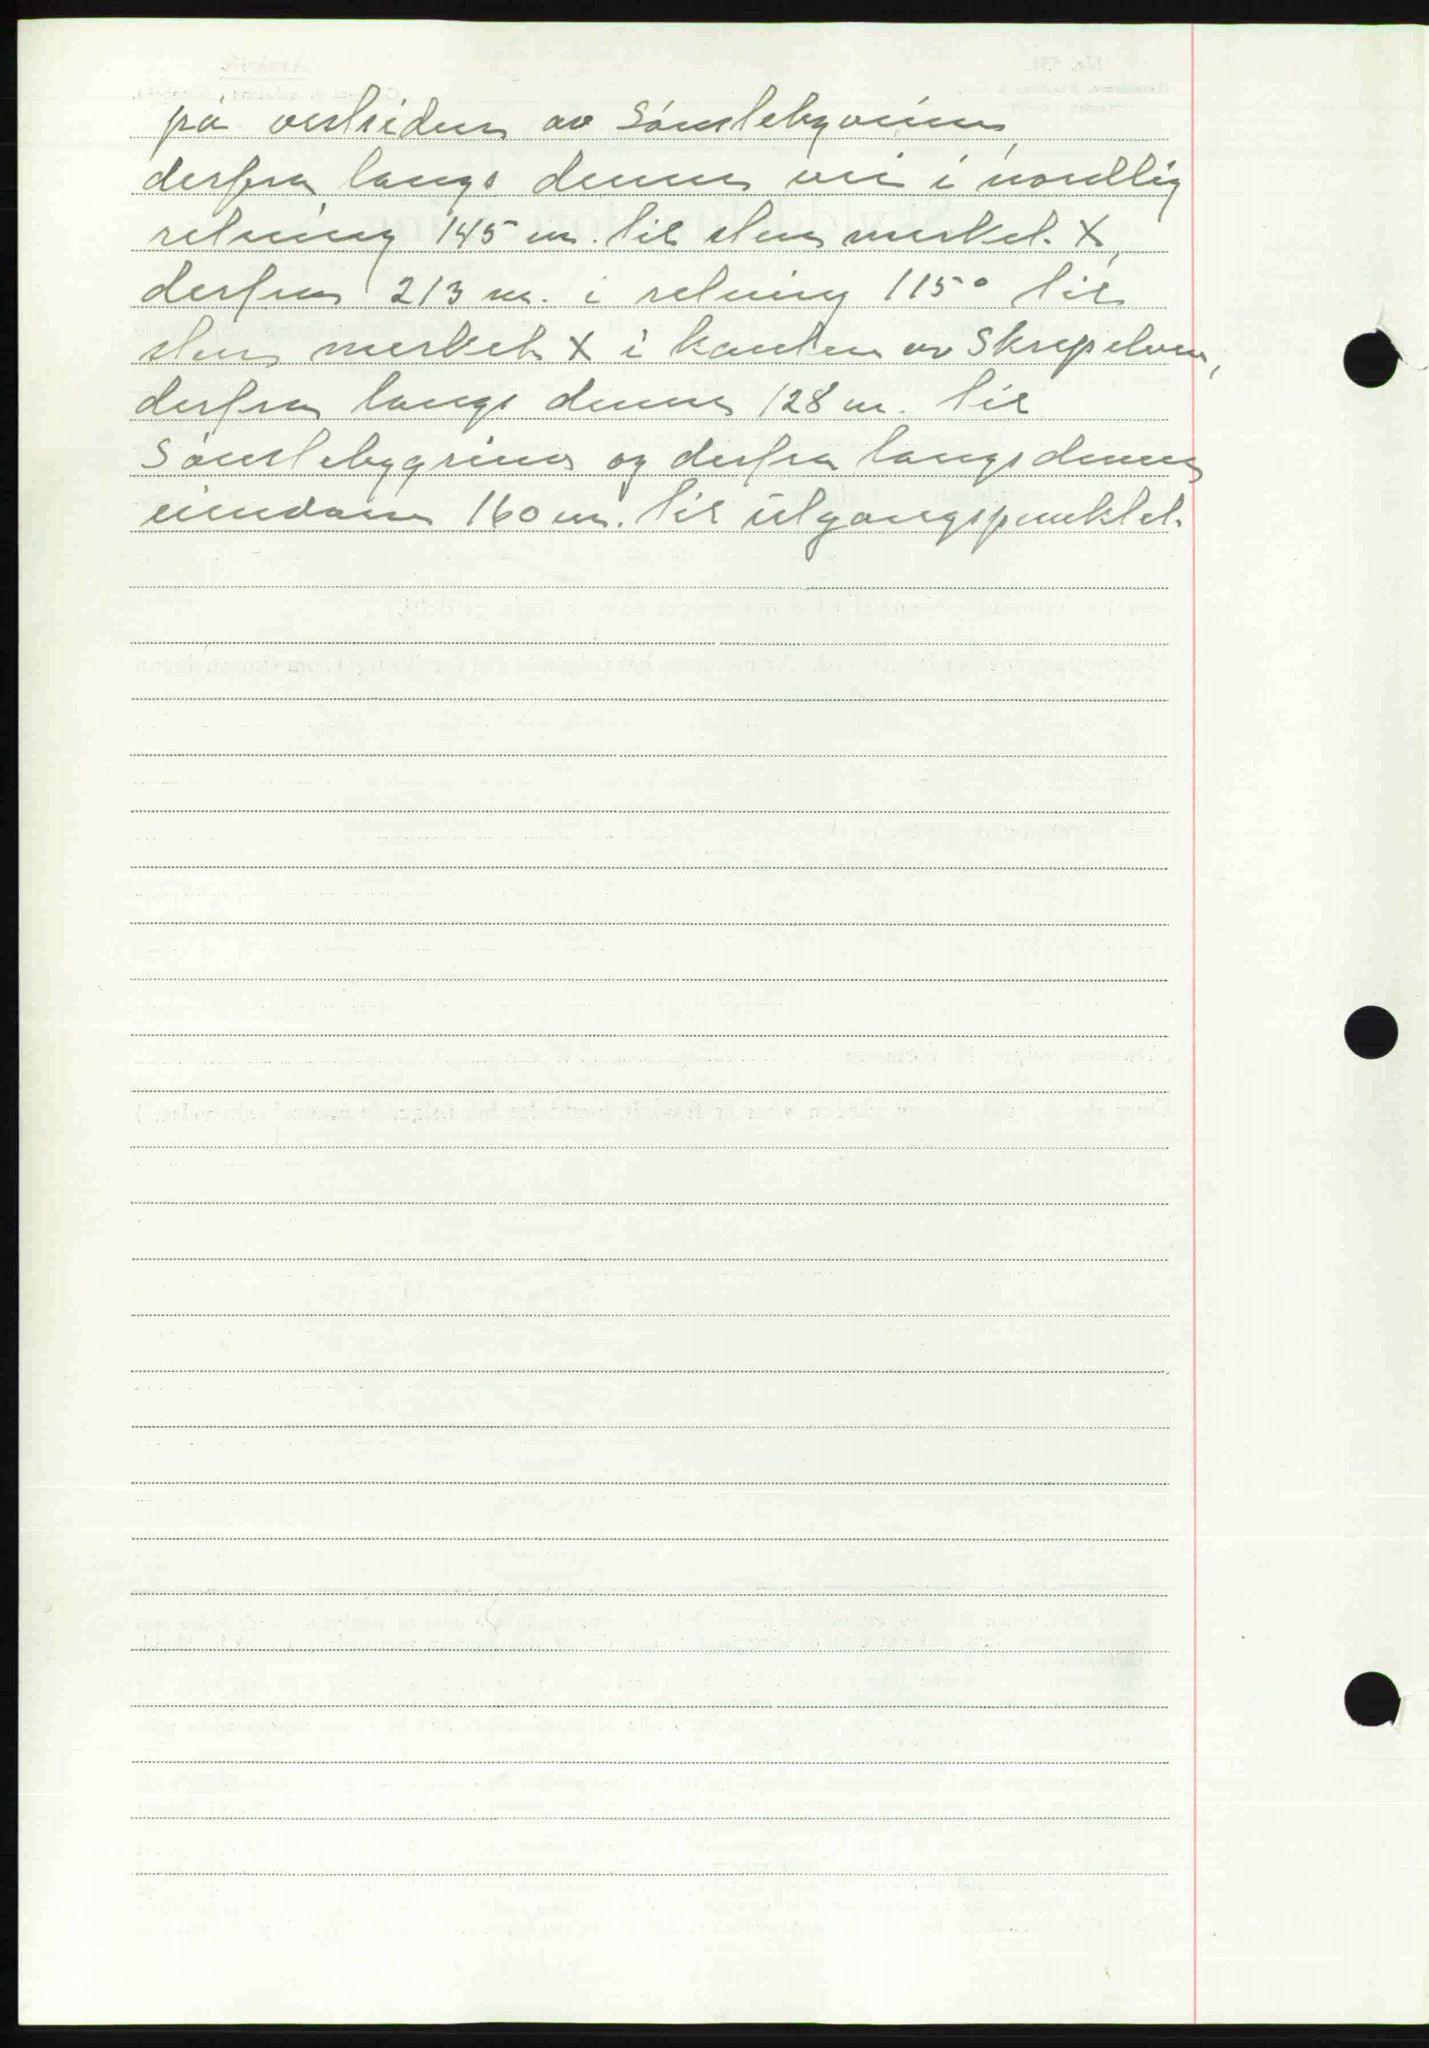 på vestsiden av Sømslebyveien,
derfra langs denne vei i nordlig
retning 145 m. til sten merket X,
derfra 213 m. i retning 115° til
sten merket X i kanten av Skrepelven,
derfra langs denne 128 m. til
og derfra langs denne
eiendom 160 m. til utgangspunktet.